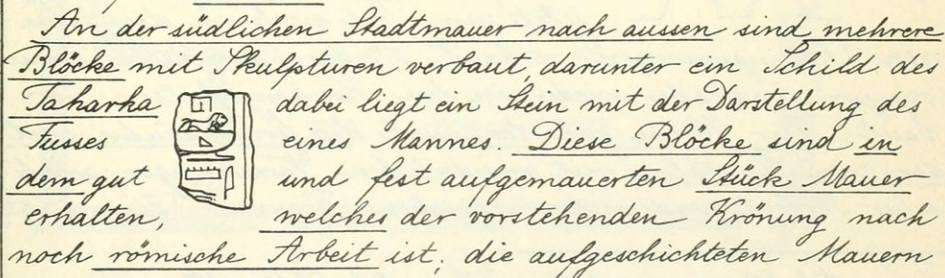 An der südlichen Stadtmauer nach aussen sind mehrere
Blöcke mit Skulpturen verbaut, darunter ein Schild des
Taharka dabei liegt ein Stein mit der Darstellung des
Fusses eines Mannes. Diese Blöcke sind in
dem gut und fest aufgemauerten Stück Mauer
erhalten, welches der vorstehenden Krönung nach
noch römische Arbeit ist; die aufgeschichteten Mauern